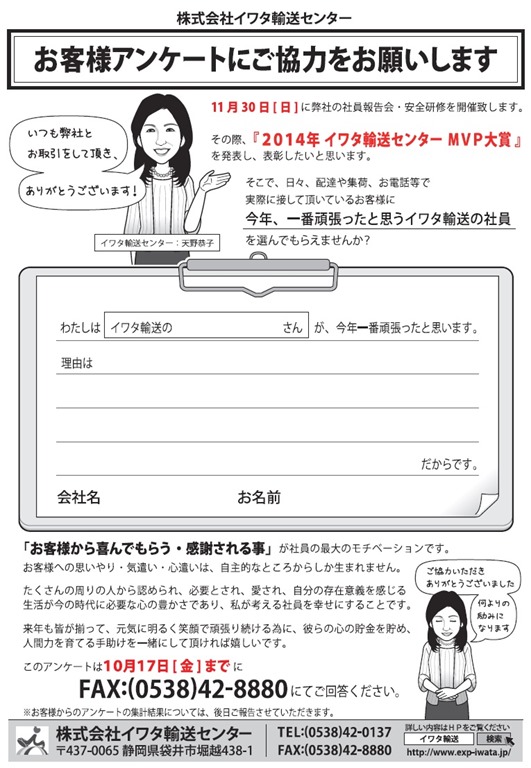 株式会社イワタ輸送センター
お客様アンケートにご協力をお願いします
11月30日[日]に弊社の社員報告会・安全研修を開催致します。
いつも弊社と
お取引をして頂き、
ありがとうございます!
その際、『2014年 イワタ輸送センター MVP大賞』
を発表し、表彰したいと思います。
そこで、日々、配達や集荷、お電話等で
実際に接して頂いているお客様に
今年、一番頑張ったと思うイワタ輸送の社員
を選んでもらえませんか?
イワタ輸送センター:天野恭子
わたしは イワタ輸送の さん が、今年一番頑張ったと思います。
理由は
だからです。
会社名 お名前
「お客様から喜んでもらう・感謝される事」が社員の最大のモチベーションです。
お客様への思いやり・気遣い・心遣いは、自主的なところからしか生まれません。
たくさんの周りの人から認められ、必要とされ、愛され、自分の存在意義を感じる
生活が今の時代に必要な心の豊かさであり、私が考える社員を幸せにすることです。
来年も皆が揃って、元気に明るく笑顔で頑張り続ける為に、彼らの心の貯金を貯め、
人間力を育てる手助けを一緒にして頂ければ嬉しいです。
ご協力いただき
ありがとうございました
何よりの
励みに
なります
このアンケートは10月17日[金]までに
FAX:(0538)42-8880にてご回答ください。
※お客様からのアンケートの集計結果については、後日ご報告させていただきます。
株式会社イワタ輸送センター
〒437-0065 静岡県袋井市堀越438-1
TEL:(0538)42-0137
FAX:(0538)42-8880
詳しい内容はHPをご覧ください
イワタ輸送 検索
http://www.exp-iwata.jp/